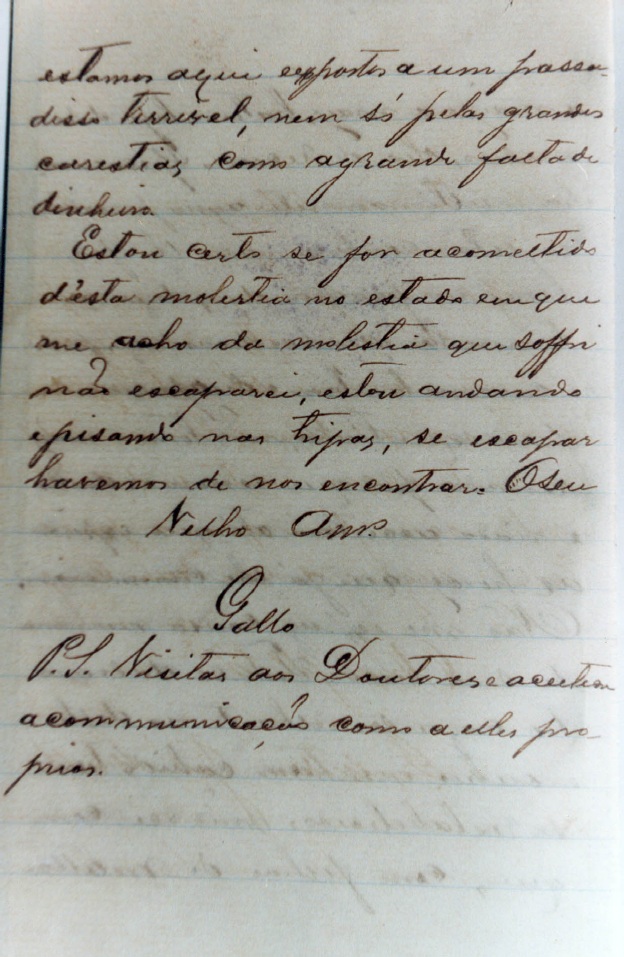 estamos aqui expostos a um passa-
disso terrivel, nem só pelas grandes
carestias, como a grande falta de
dinheiro.
Estou certo se for acomettido
d'esta molestia no estado em que
me acho da molestia que soffri
não escaparei, estou andando
e pisando nas tripas, se escapar
havemos de nos encontrar. O seu
Velho Amº.
Gallo
P.S. Visitas aos Doutores e aceitem
a communicação como a elles pro-
prios.